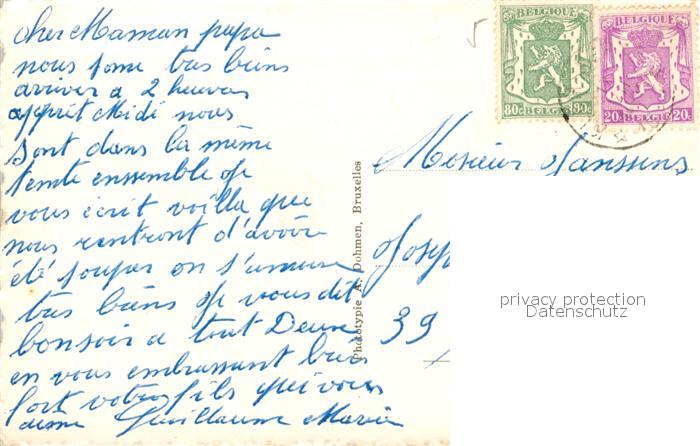 cher Maman papa
nous some tres biens
arriver a 2 heures
apprét Midi nous
sont dans la même
tente ensemble je
vous écrit voilla que
nous rentront d'avoire
été souper on s'amuse
tres biens je vous dit
bonsoir a tout Deux
en vous embrassant bien
fort votre fils qui vous
aime Guillaume Marie
5
BELGIQUE
80c 80c
BELGIE
BELGIQUE
20c 20c
BELGIE
Mosieur Janssens
Josep
39
Phototypie A. Dohmen, Bruxelles
privacy protection
Datenschutz